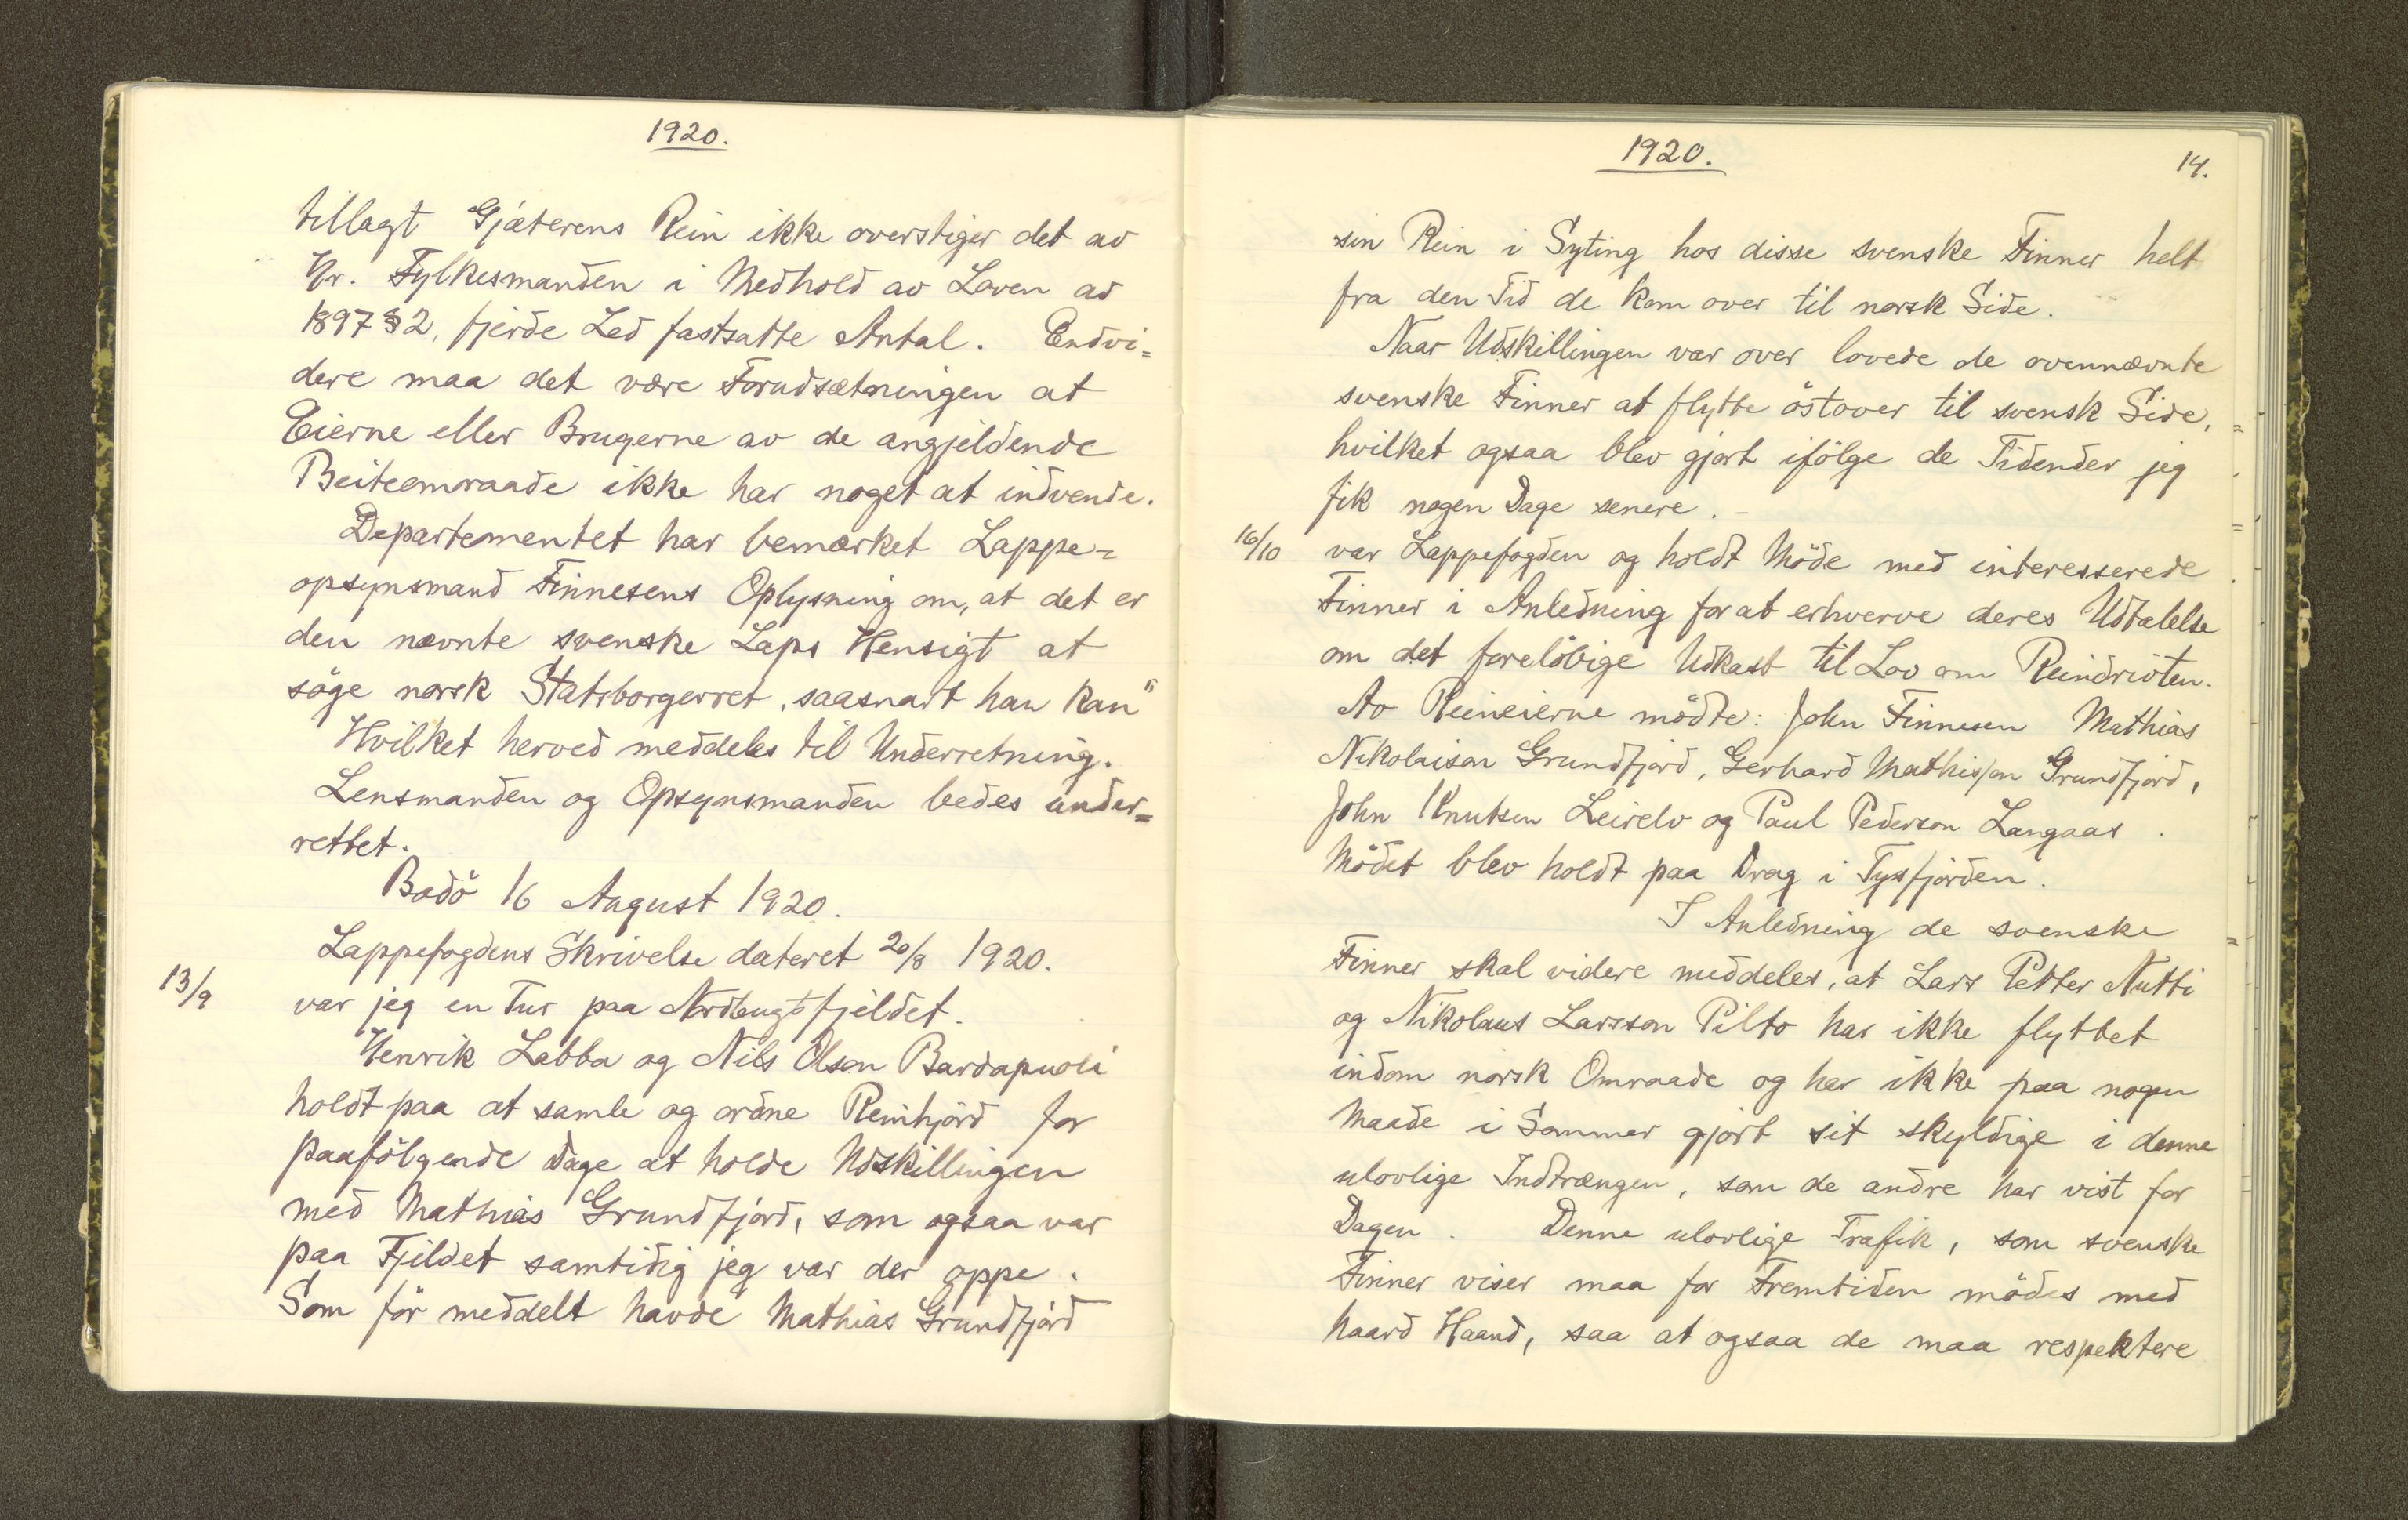 1920.
tillagt Gjæterens Rein ikke overstiger det av
Hr. Fylkesmanden i Medhold av Loven av
1897 § 2, fjerde Led fastsatte Antal. Endvi=
dere maa det være Forudsætningen at
Eierne eller Brugerne av de angjeldende
Beiteomraade ikke har noget at indvende.
Departementet har bemærket Lappe=
opsynsmand Finnesens Oplysning om, at det er
den nævnte svenske Laps Hensigt at
söge norsk Statsborgerret, saasnart han kan"
Hvilket herved meddeles til Underretning.
Lensmanden og Opsynsmanden bedes under=
rettet.
Bodö 16 August 1920.
Lappefogdens Skrivelse dateret 20/8 1920.
13/9 var jeg en Tur paa Nordbugtfjeldet.
Henrik Labba og Nils Olsen Bardapuoli
holdt paa at samle og ordne Reinhjord for
paafölgende Dage at holde Udskillingen
med Mathias Grundfjord, som ogsaa var
paa Fjeldet samtidig jeg var der oppe.
Som för meddelt havde Mathias Grundfjord
1920.
14.
sin Rein i Syting hos disse svenske Finner helt
fra den Tid de kom over til norsk Side.
Naar Udskillingen var over lovede de ovennævnte
svenske Finner at flytte östover til svensk Side,
hvilket ogsaa blev gjort ifölge de Tidender jeg
fik nogen Dage senere. -
16/10 var Lappefogden og holdt Möde med interesserede
Finner i Anledning for at erhverve deres Udtalelse
om det forelöbige Udkast til Lov om Reindriften.
Av Reineierne mödte: John Finnesen Mathias
Nikolaisen Grundfjord, Gerhard Mathissen Grundfjord,
John Knutsen Leirelv og Paul Pedersen Langaas.
Mödet blev holdt paa Drag i Tysfjorden.
I Anledning de svenske
Finner skal videre meddeles, at Lars Petter Nutti
og Nikolaus Larsson Pilto har ikke flyttet
indom norsk Omraade og har ikke paa nogen
Maade i Sommer gjort sit skyldige i denne
ulovlige Indtrængen, som de andre har vist for
Dagen. Denne ulovlige Trafik, som svenske
Finner viser maa for Fremtiden mödes med
haard Haand, saa at ogsaa de maa respektere